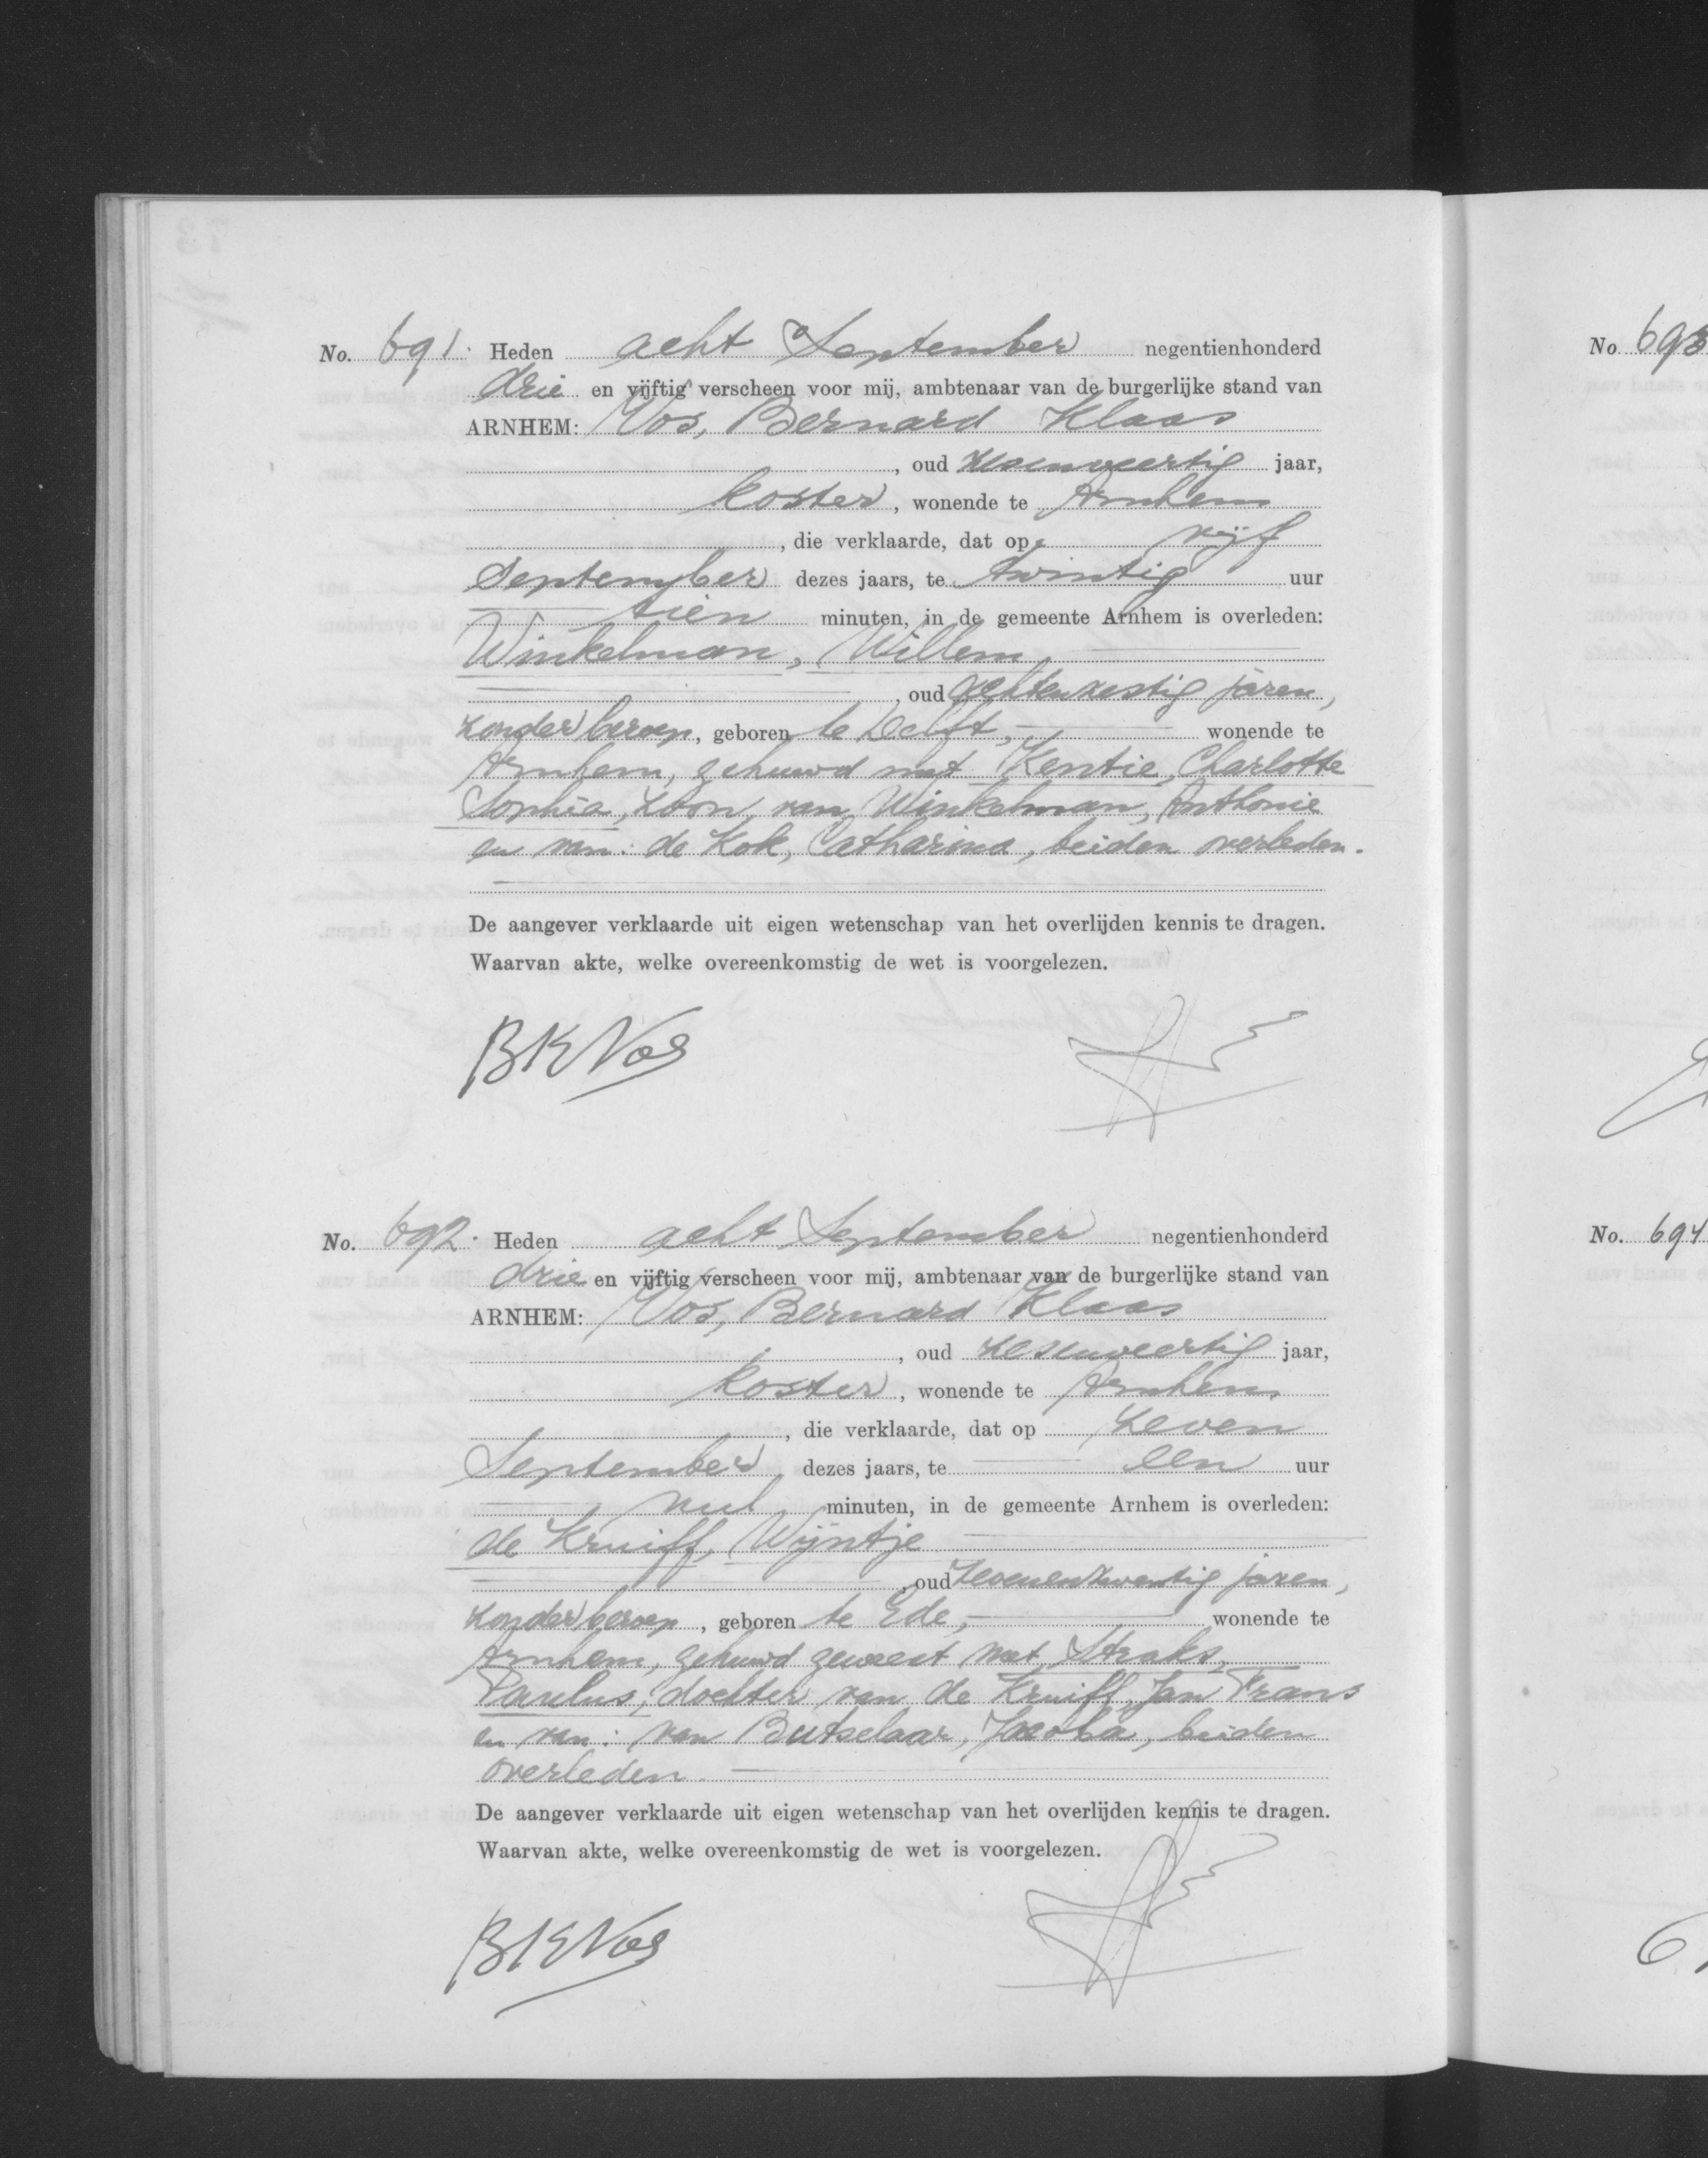 No. 691. Heden acht September negentienhonderd
drie en vijftig verscheen voor mij, ambtenaar van de burgerlijke stand van
ARNHEM: Vos, Bernard Klaas
, oud zesenveertig jaar,
koster, wonende te Arnhem
, die verklaarde, dat op vijf
September dezes jaars, te twintig uur
tien minuten, in de gemeente Arnhem is overleden:
Winkelman, Willem,
, oud achtenzestig jaren,
zonder beroep, geboren te Delft, wonende te
Arnhem, gehuwd met Kentie, Charlotte
Sophia, zoon van Winkelman, Anthonie
en van: de Kok, Catharina, beiden overleden.
De aangever verklaarde uit eigen wetenschap van het overlijden kennis te dragen.
Waarvan akte, welke overeenkomstig de wet is voorgelezen.
BKVos
No. 692. Heden acht September negentienhonderd
drie en vijftig verscheen voor mij, ambtenaar van de burgerlijke stand van
ARNHEM: Vos, Bernard Klaas
, oud zesenveertig jaar,
koster, wonende te Arnhem
, die verklaarde, dat op zeven
September dezes jaars, te een uur
nul minuten, in de gemeente Arnhem is overleden:
de Kruiff, Wijntje
, oud jaren,
zonder beroep, geboren te Ede, wonende te
Arnhem, gehuwd geweest met Straks,
Paulus, dochter van de Kruiff, Jan Frans
en van: van Butselaar, Jacoba, beiden
overleden.
De aangever verklaarde uit eigen wetenschap van het overlijden kennis te dragen.
Waarvan akte, welke overeenkomstig de wet is voorgelezen.
BKVos
No. 693
No. 694